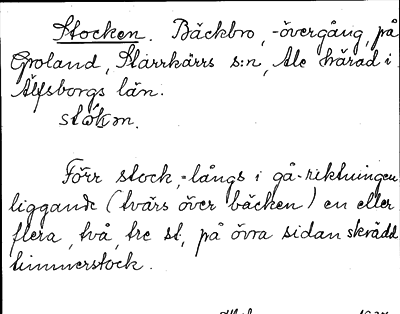 Stocken. Bäckbro, -övergång, på
Groland, Starrkärrs s:n, Ale härad i
Älfsborgs län.

Förr stock, -långs i gå-riktningen
liggande (tvärs över bäcken) en eller
flera, två, tre st, på övra sidan skrädd
timmerstock.